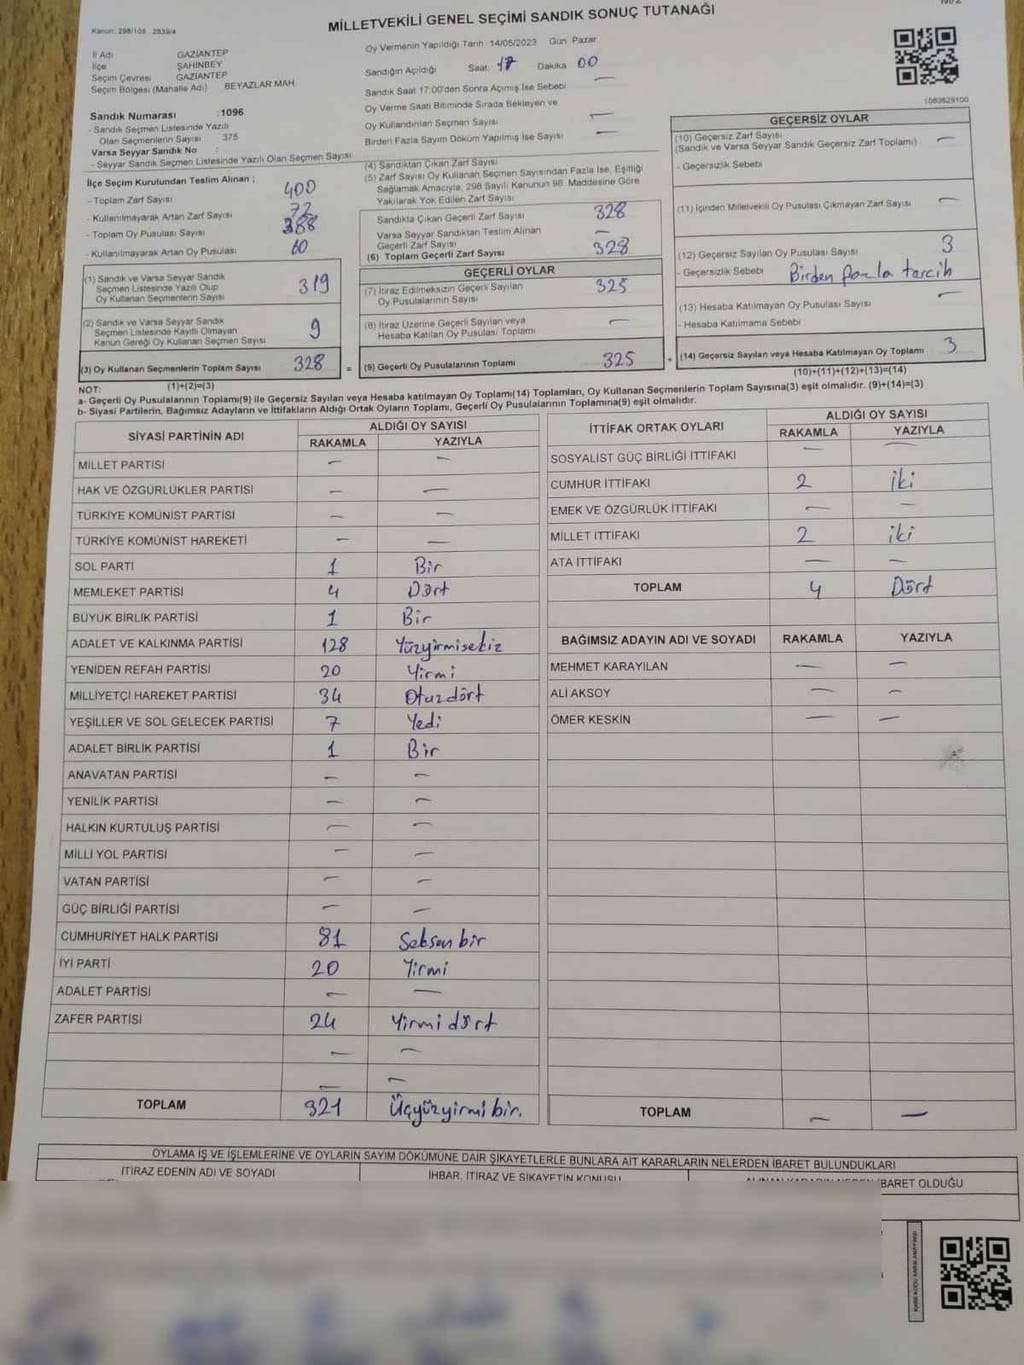 MİLLETVEKİLİ GENEL SEÇİMİ SANDIK SONUÇ TUTANAĞI
Kanun: 298/105 2839/4
İl Adı GAZİANTEP
İlçe ŞAHİNBEY
Seçim Çevresi GAZİANTEP
Seçim Bölgesi (Mahalle Adı) BEYAZLAR MAH
Oy Vermenin Yapıldığı Tarih 14/05/2023 Gün Pazar
Sandığın Açıldığı Saat: 17 Dakika 00
Sandık Saat 17:00'den Sonra Açılmış İse Sebebi —
Oy Verme Saati Bitiminde Sırada Bekleyen ve
Oy Kullandırılan Seçmen Sayısı —
Birden Fazla Sayım Döküm Yapılmış İse Sayısı —
1083629100
Sandık Numarası :1096
- Sandık Seçmen Listesinde Yazılı
Olan Seçmenlerin Sayısı : 375
Varsa Seyyar Sandık No :
- Seyyar Sandık Seçmen Listesinde Yazılı Olan Seçmen Sayısı:
İlçe Seçim Kurulundan Teslim Alınan ;
- Toplam Zarf Sayısı 400
- Kullanılmayarak Artan Zarf Sayısı 72
- Toplam Oy Pusulası Sayısı 388
- Kullanılmayarak Artan Oy Pusulası 60
(1) Sandık ve Varsa Seyyar Sandık
Seçmen Listesinde Yazılı Olup
Oy Kullanan Seçmenlerin Sayısı 319
(2) Sandık ve Varsa Seyyar Sandık
Seçmen Listesinde Kayıtlı Olmayan
Kanun Gereği Oy Kullanan Seçmen Sayısı 9
(3) Oy Kullanan Seçmenlerin Toplam Sayısı 328
(1)+(2)=(3)
(4) Sandıktan Çıkan Zarf Sayısı
(5) Zarf Sayısı Oy Kullanan Seçmen Sayısından Fazla İse, Eşitliği
Sağlamak Amacıyla, 298 Sayılı Kanunun 98. Maddesine Göre
Yakılarak Yok Edilen Zarf Sayısı
Sandıkta Çıkan Geçerli Zarf Sayısı 328
Varsa Seyyar Sandıktan Teslim Alınan
Geçerli Zarf Sayısı —
(6) Toplam Geçerli Zarf Sayısı 328
GEÇERLİ OYLAR
(7) İtiraz Edilmeksizin Geçerli Sayılan
Oy Pusulalarının Sayısı 325
(8) İtiraz Üzerine Geçerli Sayılan veya
Hesaba Katılan Oy Pusulası Toplamı —
= (9) Geçerli Oy Pusulalarının Toplamı 325 +
GEÇERSİZ OYLAR
(10) Geçersiz Zarf Sayısı
(Sandık ve Varsa Seyyar Sandık Geçersiz Zarf Toplamı) —
- Geçersizlik Sebebi
(11) İçinden Milletvekili Oy Pusulası Çıkmayan Zarf Sayısı —
(12) Geçersiz Sayılan Oy Pusulası Sayısı 3
- Geçersizlik Sebebi Birden fazla tercih
(13) Hesaba Katılmayan Oy Pusulası Sayısı —
- Hesaba Katılmama Sebebi
(14) Geçersiz Sayılan veya Hesaba Katılmayan Oy Toplamı 3
(10)+(11)+(12)+(13)=(14)
NOT:
a- Geçerli Oy Pusulalarının Toplamı(9) ile Geçersiz Sayılan veya Hesaba katılmayan Oy Toplamı(14) Toplamları, Oy Kullanan Seçmenlerin Toplam Sayısına(3) eşit olmalıdır. (9)+(14)=(3)
b- Siyasi Partilerin, Bağımsız Adayların ve İttifakların Aldığı Ortak Oyların Toplamı, Geçerli Oy Pusulalarının Toplamına(9) eşit olmalıdır.
SİYASİ PARTİNİN ADI ALDIĞI OY SAYISI
RAKAMLA YAZIYLA
MİLLET PARTİSİ — —
HAK VE ÖZGÜRLÜKLER PARTİSİ — —
TÜRKİYE KOMÜNİST PARTİSİ — —
TÜRKİYE KOMÜNİST HAREKETİ — —
SOL PARTİ 1 Bir
MEMLEKET PARTİSİ 4 Dört
BÜYÜK BİRLİK PARTİSİ 1 Bir
ADALET VE KALKINMA PARTİSİ 128 Yüzyirmisekiz
YENİDEN REFAH PARTİSİ 20 Yirmi
MİLLİYETÇİ HAREKET PARTİSİ 34 Otuzdört
YEŞİLLER VE SOL GELECEK PARTİSİ 7 Yedi
ADALET BİRLİK PARTİSİ 1 Bir
ANAVATAN PARTİSİ — —
YENİLİK PARTİSİ — —
HALKIN KURTULUŞ PARTİSİ — —
MİLLİ YOL PARTİSİ — —
VATAN PARTİSİ — —
GÜÇ BİRLİĞİ PARTİSİ — —
CUMHURİYET HALK PARTİSİ 81 Seksenbir
İYİ PARTİ 20 Yirmi
ADALET PARTİSİ — —
ZAFER PARTİSİ 24 Yirmidört
— —
— —
TOPLAM 321 Üçyüzyirmibir.
İTTİFAK ORTAK OYLARI ALDIĞI OY SAYISI
RAKAMLA YAZIYLA
SOSYALİST GÜÇ BİRLİĞİ İTTİFAKI — —
CUMHUR İTTİFAKI 2 iki
EMEK VE ÖZGÜRLÜK İTTİFAKI — —
MİLLET İTTİFAKI 2 iki
ATA İTTİFAKI — —
TOPLAM 4 Dört
BAĞIMSIZ ADAYIN ADI VE SOYADI RAKAMLA YAZIYLA
MEHMET KARAYILAN — —
ALİ AKSOY — —
ÖMER KESKİN — —
TOPLAM — —
OYLAMA İŞ VE İŞLEMLERİNE VE OYLARIN SAYIM DÖKÜMÜNE DAİR ŞİKAYETLERLE BUNLARA AİT KARARLARIN NELERDEN İBARET BULUNDUKLARI
İTİRAZ EDENİN ADI VE SOYADI İHBAR, İTİRAZ VE ŞİKAYETİN KONUSU İBARET OLDUĞU